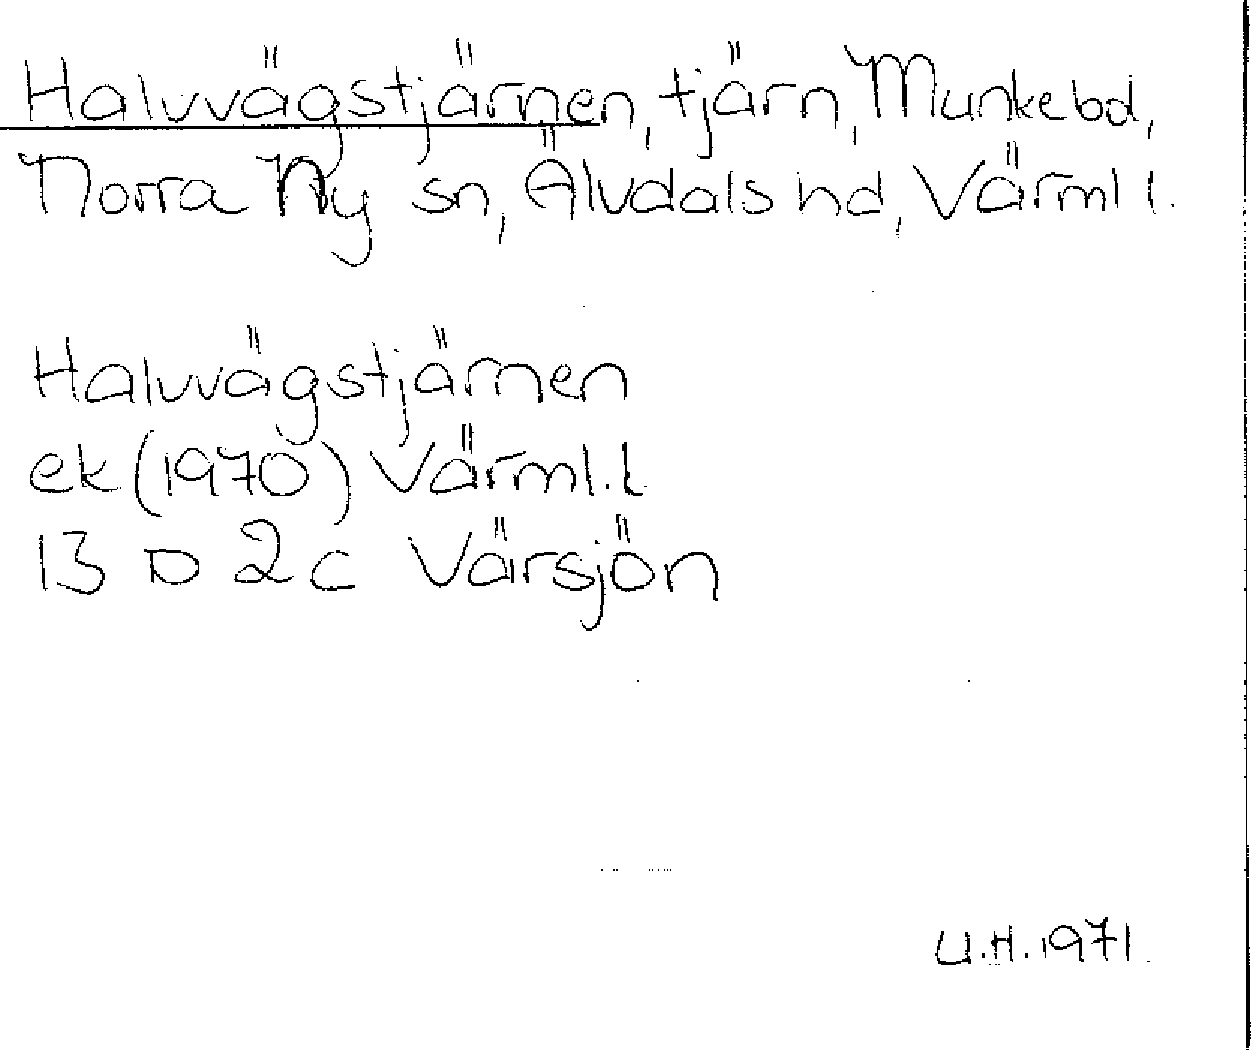 Halvvägstjärnen, tjärn, Munkebol,
Norra Ny sn, Älvdals hd, Värml l.
Halvvägstjärnen
ek (1970) Värml. l.
13 D 2c Värsjön
U.H. 1971.